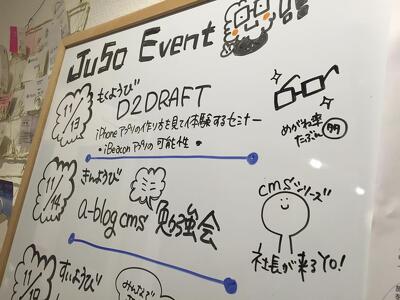 JuSo Event!!
11/13
もくようび
D2DRAFT
iPhoneアプリの作り方を見て体験するセミナー
・iBeaconアプリの可能性・
めがね率
たぶん 多
11/14
きんようび
a-blog cms 勉強会
cmsシリーズ
社長が来るYO!
すいようび
みんなで